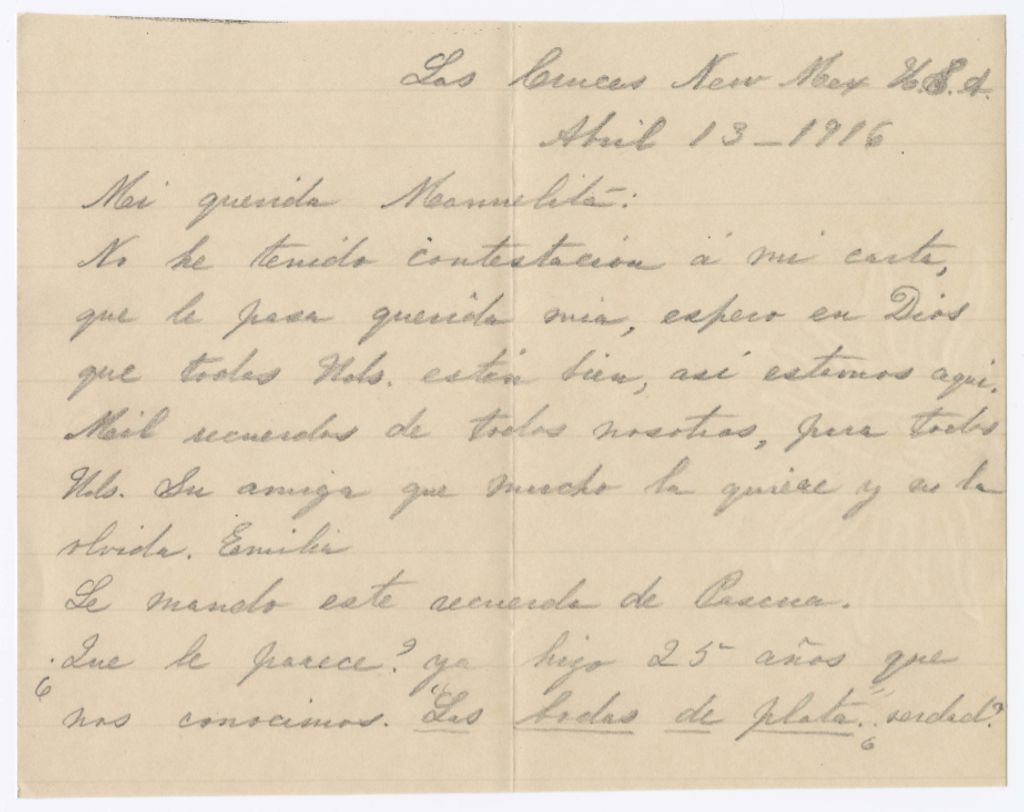 Las Cruces New Mex U.S.A.
Abril 13 - 1916
Mi querida Manuelita:
No he tenido contestación á mi carta,
que le pasa querida mia, espero en Dios
que todos Uds. están bien, así estamos aqui.
Mil recuerdos de todos nosotros, para todos
Uds. Su amiga que mucho la quiere y no la
olvida. Emilia
Le mando este recuerdo de Pascua.
¿Que le parece? ya hizo 25 años que
nos conocimos. "Las bodas de plata." ¿verdad?